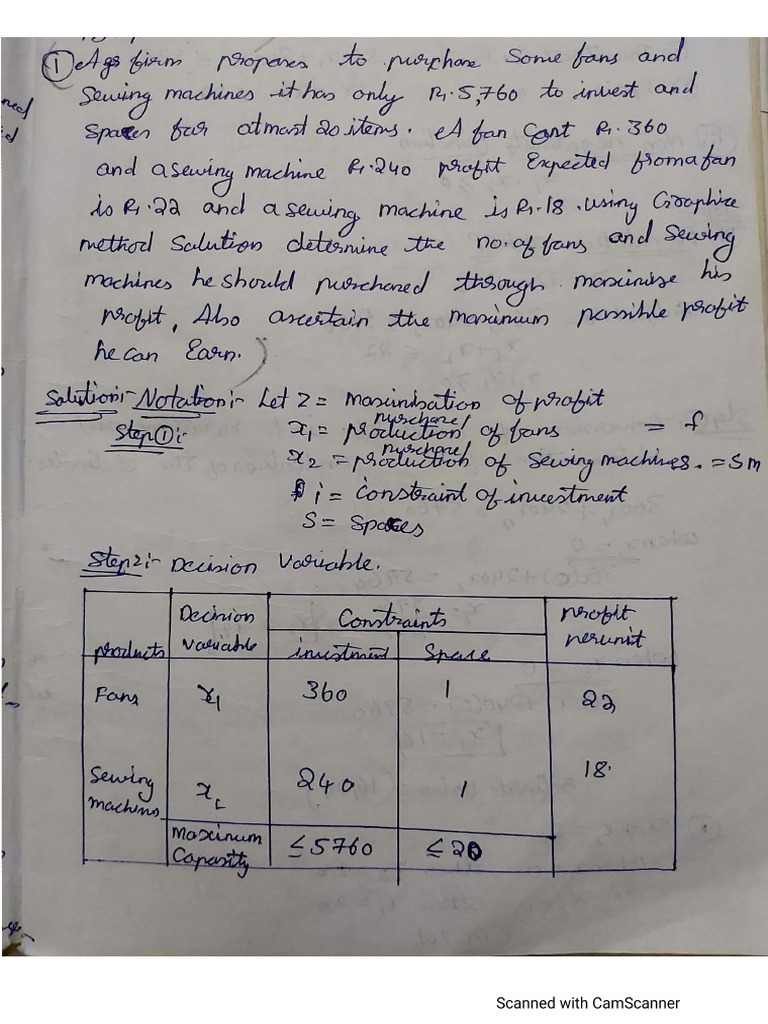 ① A gs firm proposes to purchase Some fans and
Sewing machines it has only Rs. 5,760 to invest and
Spaces for atmost 20 items. A fan Cost Rs. 360
and a sewing machine Rs. 240 profit Expected from a fan
is Rs. 22 and a sewing machine is Rs. 18. using Graphice
method Solution determine the no. of fans and Sewing
machines he should purchased through maximise his
profit, Also ascertain the maximum possible profit
he can Earn.
Solution:- Notation:- Let Z = maximisation of profit
purchase
Step ①:- x₁ = production of fans = f
purchase
x₂ = production of Sewing machines. = Sm
i = Constraint of investment
S = Spaces
Step 2:- Decision Variable.
products Decision variable Constraints profit per unit
investment Space
Fans x₁ 360 1 22
Sewing machines x₂ 240 1 18
Maximum Capasity ≤ 5760 ≤ 20
Scanned with CamScanner